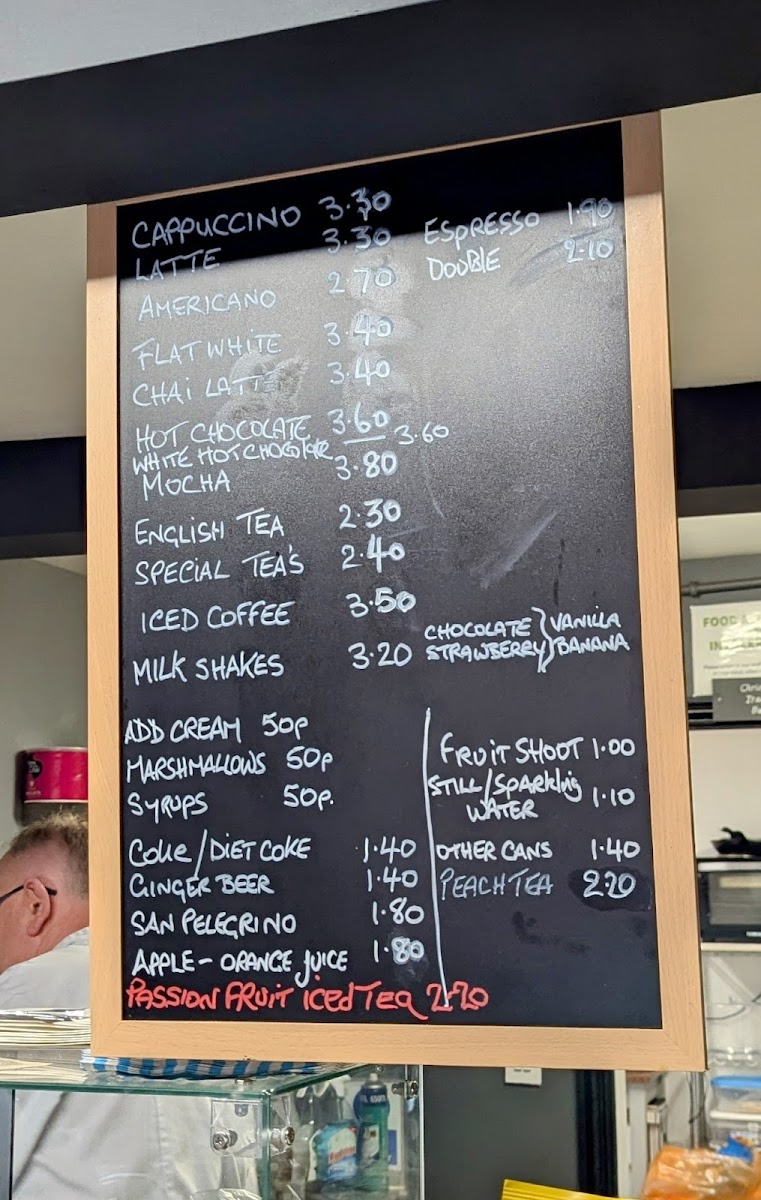 CAPPUCCINO 3.30
LATTE 3.30
AMERICANO 2.70
ESPRESSO 1.90
DOUBLE 2.10
FLAT WHITE 3.40
CHAI LATTE 3.40
HOT CHOCOLATE 3.60
WHITE HOT CHOCOLATE 3.60
MOCHA 3.80
ENGLISH TEA 2.30
SPECIAL TEA'S 2.40
ICED COFFEE 3.50
MILK SHAKES 3.20
CHOCOLATE } VANILLA
STRAWBERRY } BANANA
ADD CREAM 50p
MARSHMALLOWS 50p
SYRUPS 50p.
COKE/DIET COKE 1.40
GINGER BEER 1.40
SAN PELEGRINO 1.80
APPLE - ORANGE JUICE 1.80
FRUIT SHOOT 1.00
STILL/SPARKLING
WATER 1.10
OTHER CANS 1.40
PEACH TEA 2.20
PASSION FRUIT iced Tea 2.20
FOOD